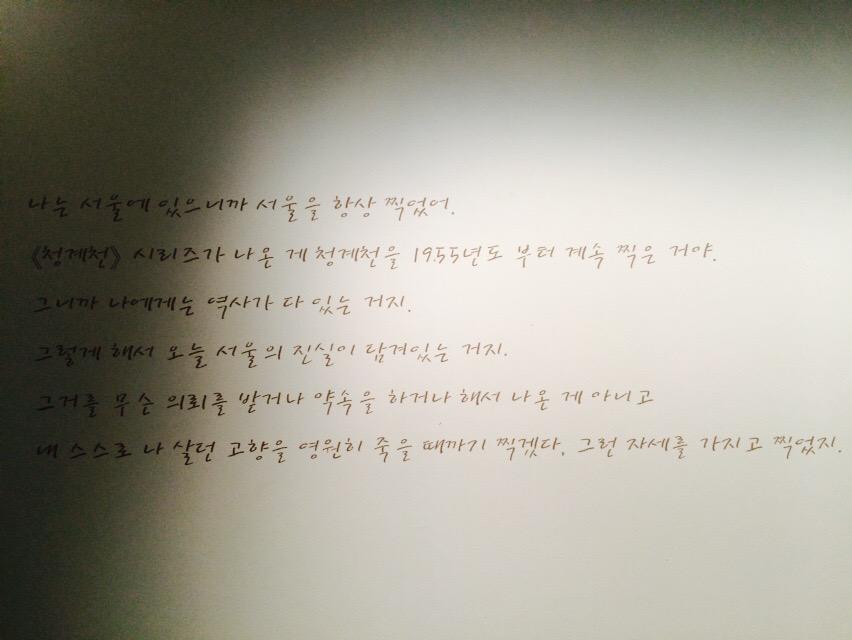 나는 서울에 있으니까 서울을 항상 찍었어.
《청계천》 시리즈가 나온 게 청계천을 1955년도 부터 계속 찍은 거야.
그니까 나에게는 역사가 다 있는 거지.
그렇게 해서 오늘 서울의 진실이 담겨있는 거지.
그거를 무슨 의뢰를 받거나 약속을 하거나 해서 나온 게 아니고
내 스스로 나 살던 고향을 영원히 죽을 때까지 찍겠다. 그런 자세를 가지고 찍었지.